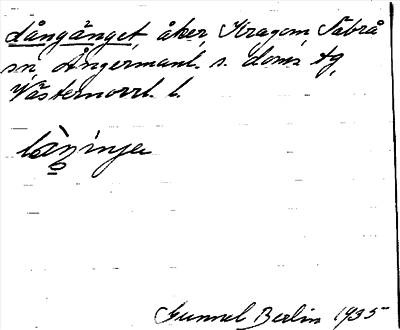 Långänget, åker, Kragom Säbrå
sn, Ångermanl. s. doms tg,
Västernorrl. l.
Gunnel Berlin 1935